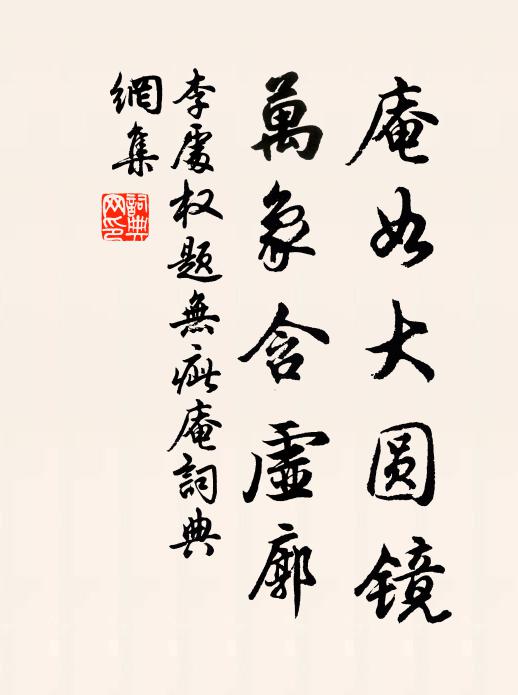 庵如大圆镜
萬象含虛廓
李處权题無疵庵詞典
網集
詞典网印